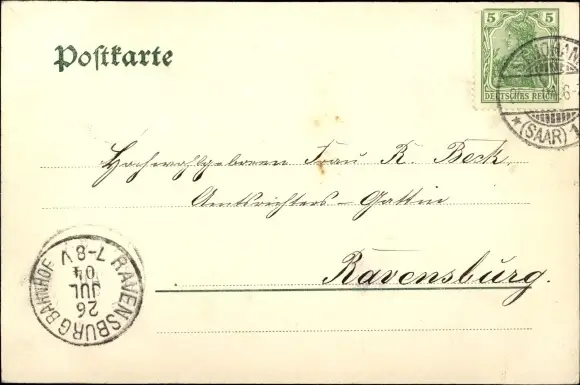 Postkarte
5 5
DEUTSCHES REICH
ST. JOHANN
(SAAR) 1
Hochwohlgeboren Frau R. Beck,
Amtsrichters-Gattin
Ravensburg.
RAVENSBURG BAHNHOF
26
JUL
04
7-8V